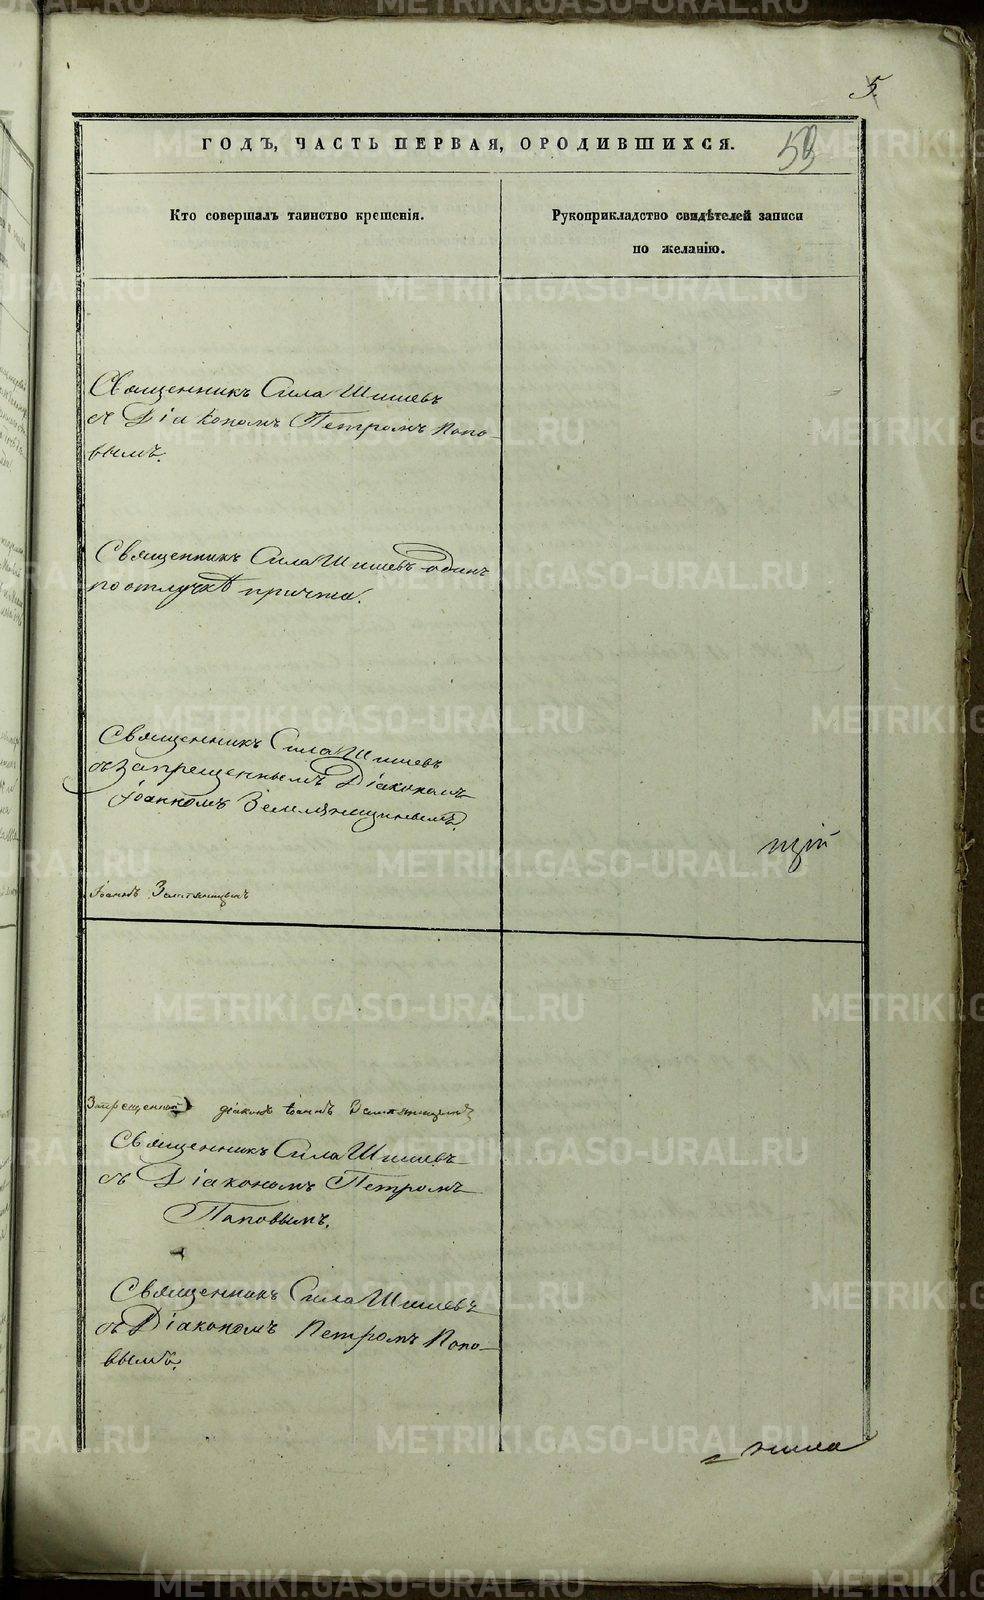 5.
59
ГОДЪ, ЧАСТЬ ПЕРВАЯ, ОРОДИВШИХСЯ.
Кто совершалъ таинство крещенія.
Рукоприкладство свидѣтелей записи
по желанію.
Священникъ Сила Шишевъ
съ Діакономъ Петромъ Попо-
вымъ.
Священникъ Сила Шишевъ одинъ
по отлучкѣ причта.
Священникъ Сила Шишевъ
съ запрещеннымъ Діакономъ
Іоанномъ Земляницынымъ.
Іоаннъ Земляницынъ
Запрещенной діаконъ Іоаннъ Земляницынъ
Священникъ Сила Шишевъ
съ Діакономъ Петромъ
Паповымъ.
Священникъ Сила Шишевъ
съ Діакономъ Петромъ Попо-
вымъ.
METRIKI.GASO-URAL.RU